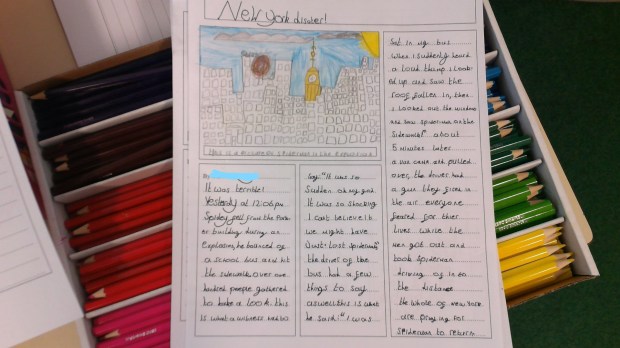 New york disater!
this is a picture of spiderman in the explosion
By
It was terrible!
Yesterday at 12:06pm
Spidey fell from the
er building during an
Explosion, he bounced of
a school bus and hit
the sidewalk over one
hundred people gathered
to take a look. this
is what a witness had to
Say: "It was so
Sudden oh my god.
It was so shocking
I cant believe it
we might have
Just lost spiderman"
the driver of the
bus had a few
things to say
aswell this is what
he said: "I was
Sat in my bus
when I suddenly heard
a loud thump i look-
ed up and saw the
roof fallen in, then
i looked out the window
and saw spiderman on the
sidewalk" about
5 minutes later
a van came and pulled
over, the driver had
a gun they fired in
the air everyone
feared for thier
lives while the
men got out and
took Spiderman
driving of into
the distance
the whole of new york
are praying for
spiderman to return